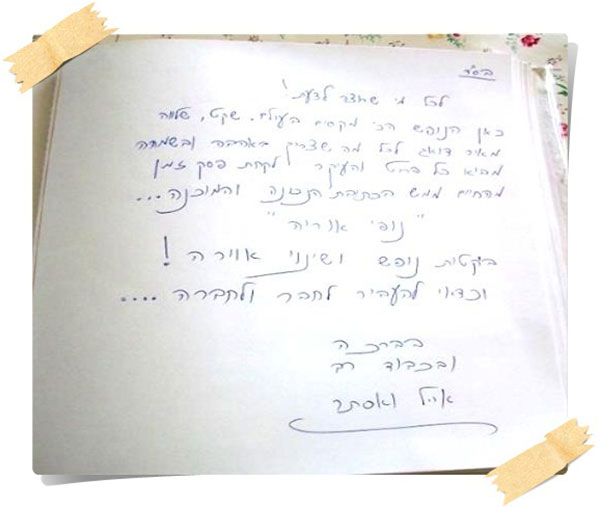 בס"ד
לכל מי שחצר לדעת!
כאן הנופש הכי מקסים בעולם. שקט, שלווה
מאיר דואג לכל מה שצריך באהבה ובשמחה
כל פרט והעיקר לקחת פסק זמן
מהחיים ממש הכתובת הנכונה והמוכנה...
"נופי אוריה"
בקטית נופש ושינוי אווירה!
וכדאי להעביר לחבר ולחברה....
בברכה
ובכבוד רב
אייל ואסתר